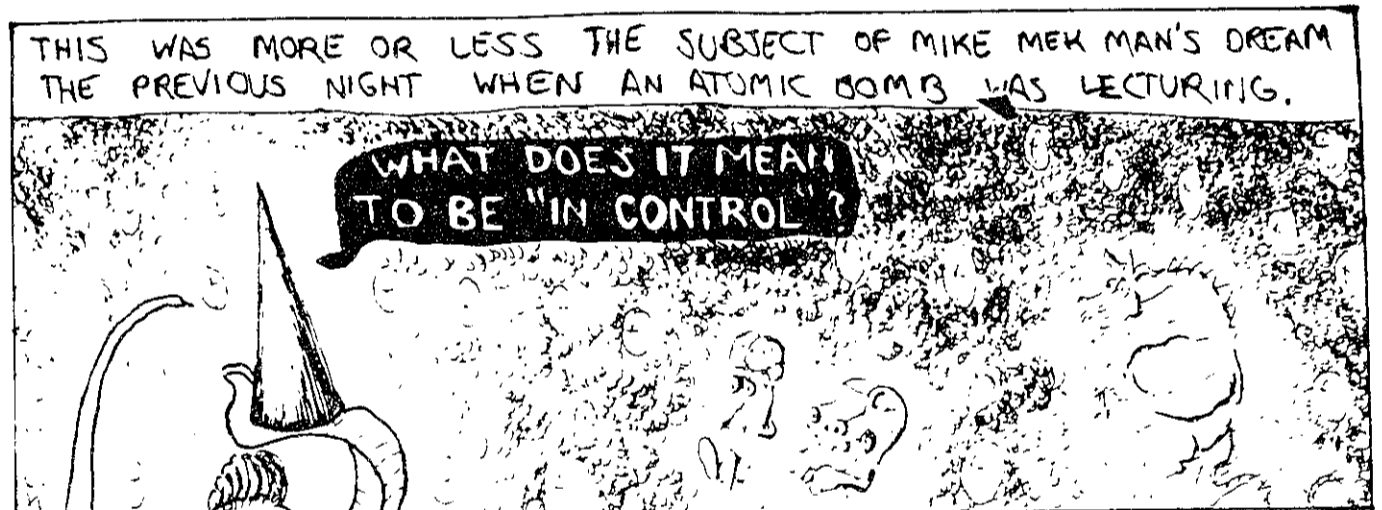 THIS WAS MORE OR LESS THE SUBJECT OF MIKE MEK MAN'S DREAM
THE PREVIOUS NIGHT WHEN AN ATOMIC BOMB WAS LECTURING.
WHAT DOES IT MEAN
TO BE "IN CONTROL"?